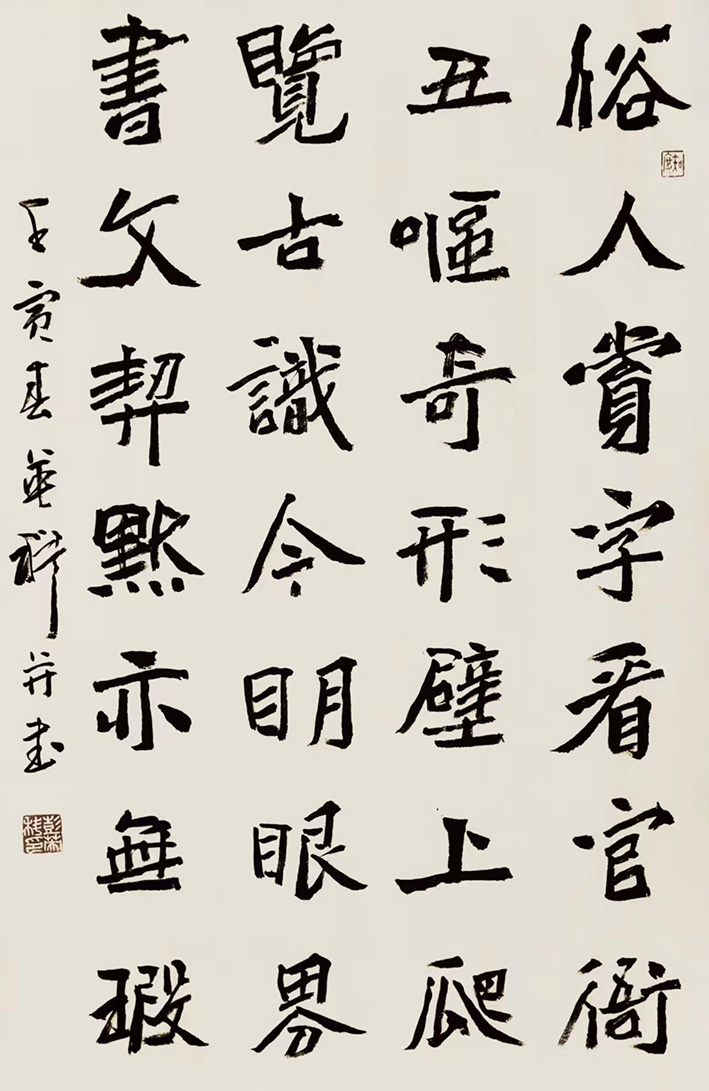 俗人賞字看官衙
丑嘔奇形壁上爬
覽古識今眀眼界
書文契黙亦無瑕
壬寅春并書